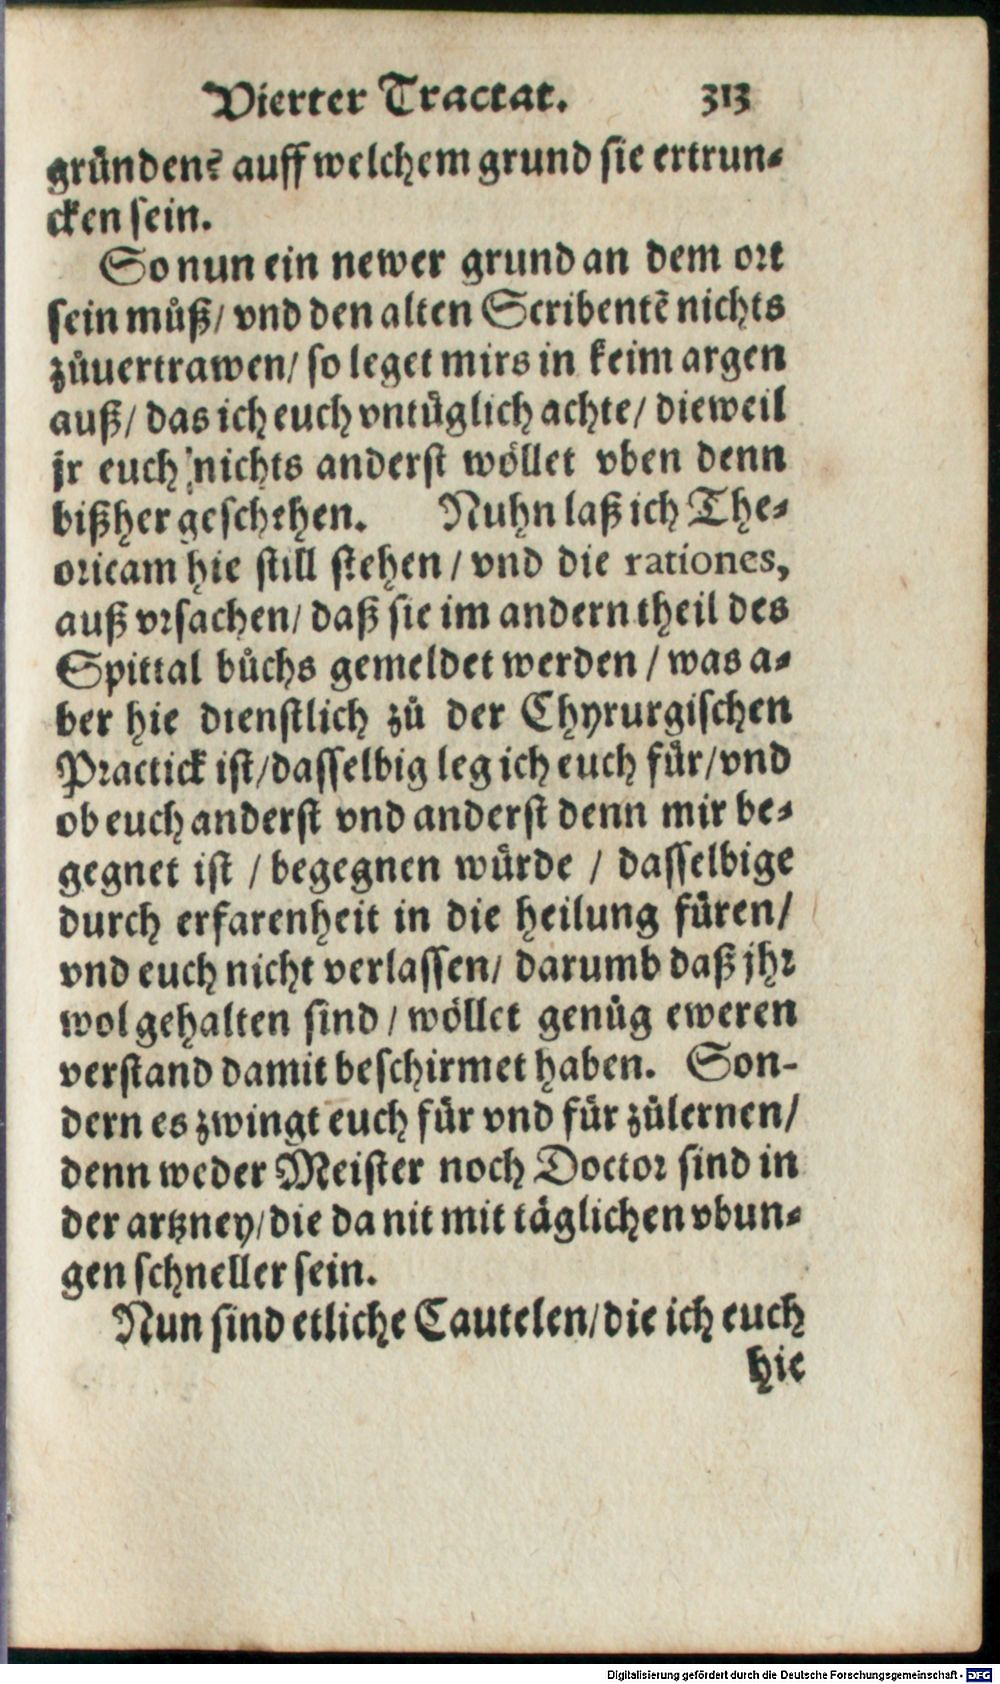 Vierter Tractat. 313
gründen? auff welchem grund sie ertrun-
cken sein.
So nun ein newer grund an dem ort
sein můß/ vnd den alten Scribentē nichts
zůuertrawen/ so leget mirs in keim argen
auß/ das ich euch vntüglich achte/ dieweil
jr euch nichts anderst wöllet vben denn
bißher geschehen. Nuhn laß ich The-
oricam hie still stehen/ vnd die rationes,
auß vrsachen/ daß sie im andern theil des
Spittal bůchs gemeldet werden/ was a-
ber hie dienstlich zů der Chyrurgischen
Practick ist/ dasselbig leg ich euch für/ vnd
ob euch anderst vnd anderst denn mir be-
gegnet ist/ begegnen würde/ dasselbige
durch erfarenheit in die heilung füren/
vnd euch nicht verlassen/ darumb daß jhr
wol gehalten sind/ wöllet genůg eweren
verstand damit beschirmet haben. Son-
dern es zwingt euch für vnd für zůlernen/
denn weder Meister noch Doctor sind in
der artzney/ die da nit mit täglichen vbun-
gen schneller sein.
Nun sind etliche Cautelen/ die ich euch
hie
Digitalisierung gefördert durch die Deutsche Forschungsgemeinschaft - DFG